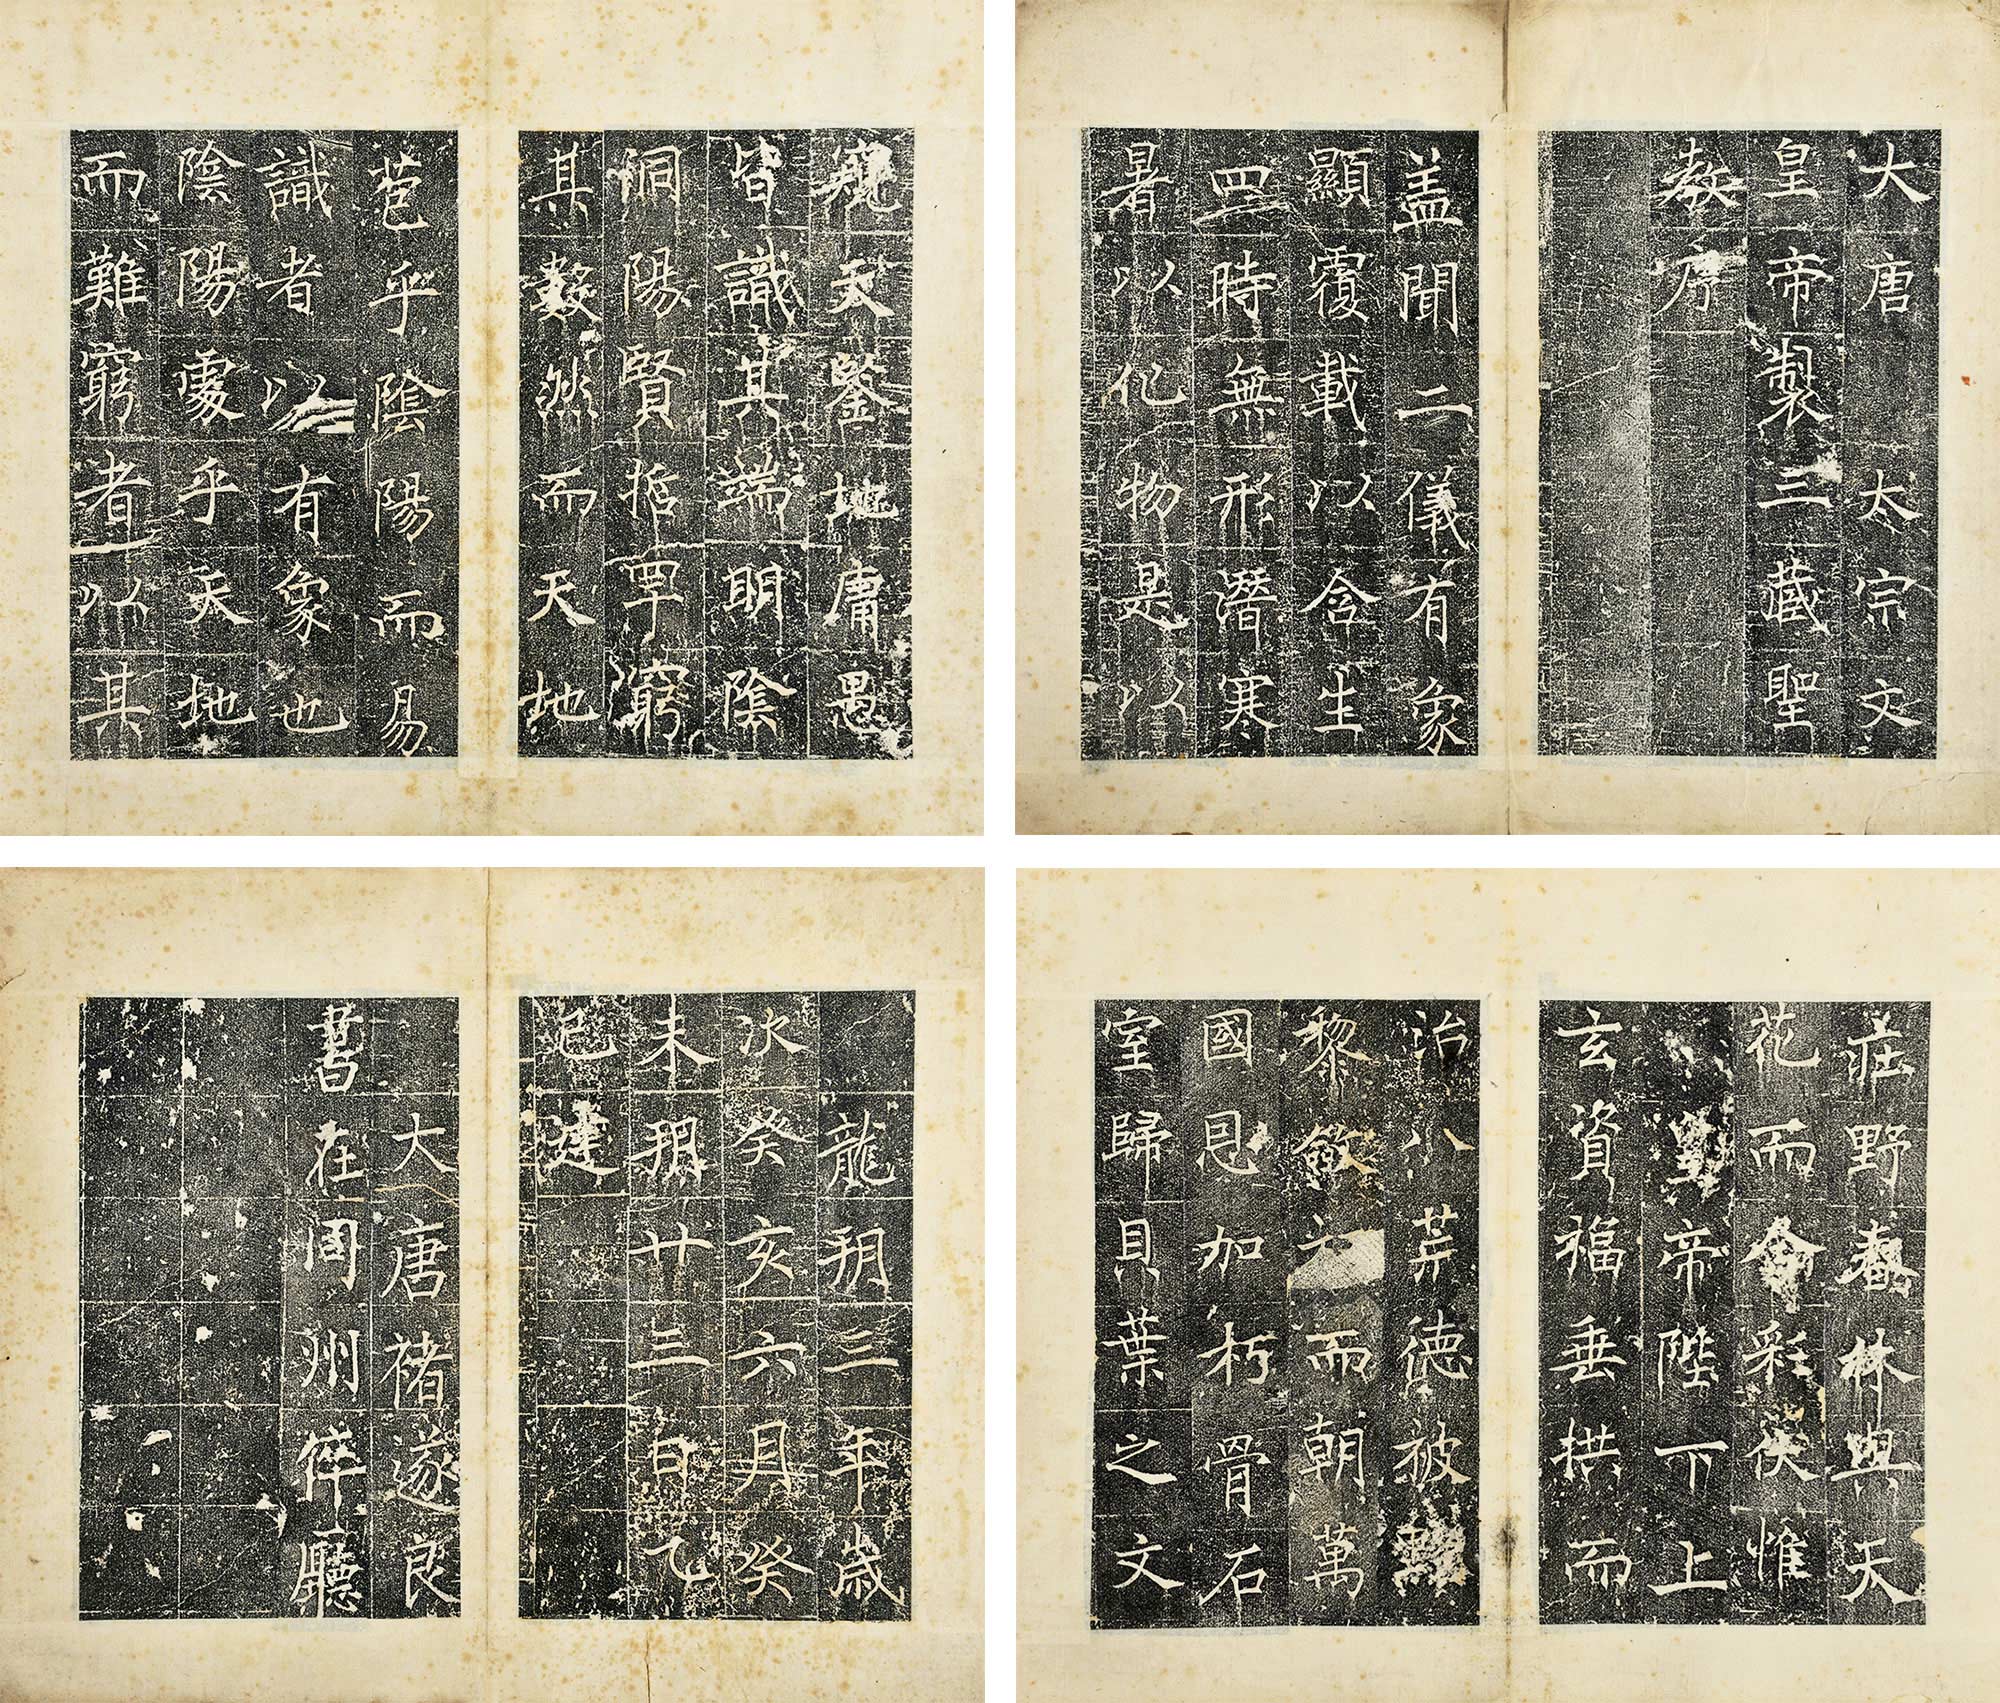 大唐太宗文
皇帝製三藏聖
教序
盖聞二儀有象
顯覆載以含生
四時無形潛寒
暑以化物是以
窺天鑒地庸愚
皆識其端明陰
洞陽賢哲罕窮
其數然而天地
苞乎陰陽而易
識者以有象也
陰陽處乎天地
而難窮者以其
莊野春林與天
花而合彩伏惟
皇帝陛下上
玄資福垂拱而
治八荒德被黔
黎斂衽而朝萬
國恩加朽骨石
室歸貝葉之文
龍朔三年歲
次癸亥六月癸
未朔廿三日乙
巳建
大唐褚遂良
書在同州倅廳